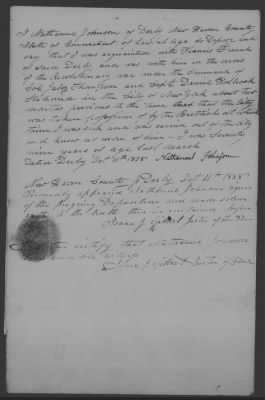 I Nathaniel Johnson of Derby New Haven County
State of Connecticut of Lawful age do Depose and
say that I was acquainted with Francis French
of said Derby and was with him in the service
of the Revolutionary war under the Command of
Col Jabez Thompson and Capt Daniel Holbrook
Stationed in the State of New York about two
months previous to the time that the City
was taken possession of by the British at which
time I was sick and was carried out of the city
and knew no more of him I was Seventy
nine years of age last March
Dated Derby Sept 11th 1838 Nathaniel Johnson
New Haven County Derby Sept 11th 1838
Personally appeared Nathaniel Johnson signer
of the foregoing Deposition and made solemn
oath to the truth therein contained before
Isaac J Gilbert Justice of the Peace
certify that Nathaniel Johnson
Isaac J Gilbert Justice of Peace